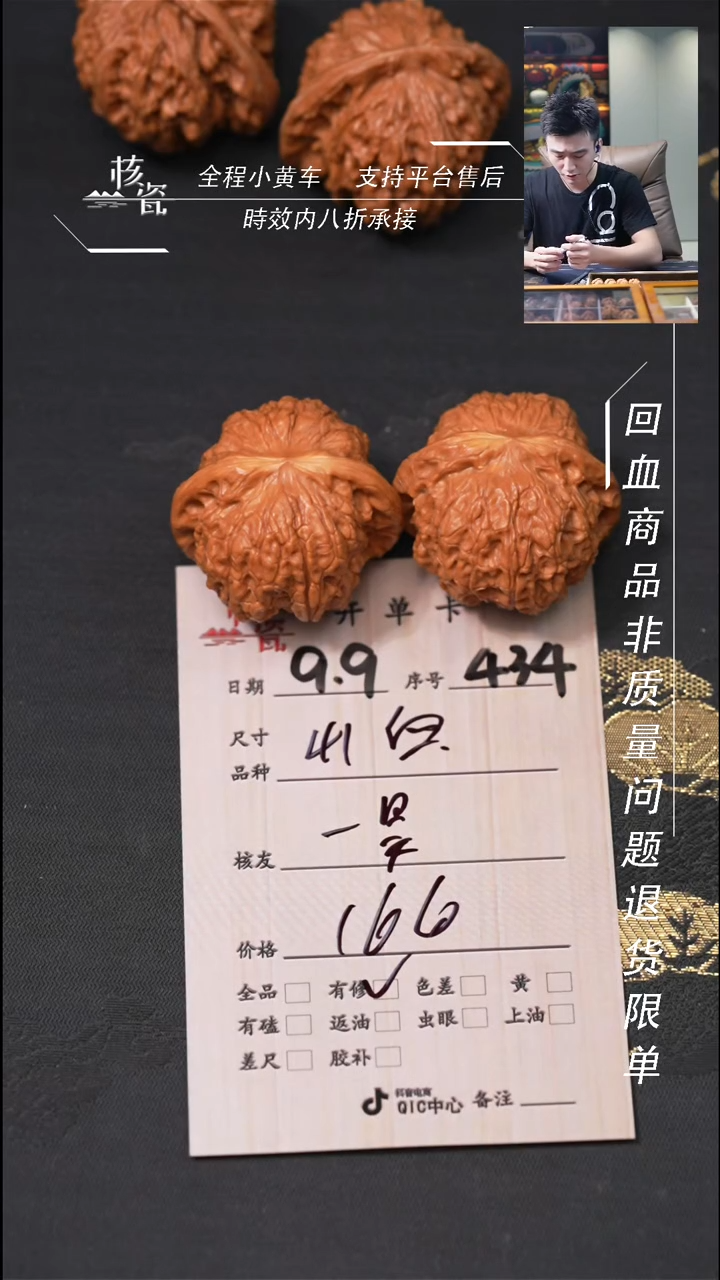 核瓷
全程小黄车 支持平台售后
時效内八折承接
回血商品非质量问题退货限单
开单卡
日期 9.9 序号 434
尺寸 41
品种
核友 一
价格 166
全品 有修 ✓ 色差 黄
有磕 返油 虫眼 上油
差尺 胶补
抖音电商
QIC中心 备注